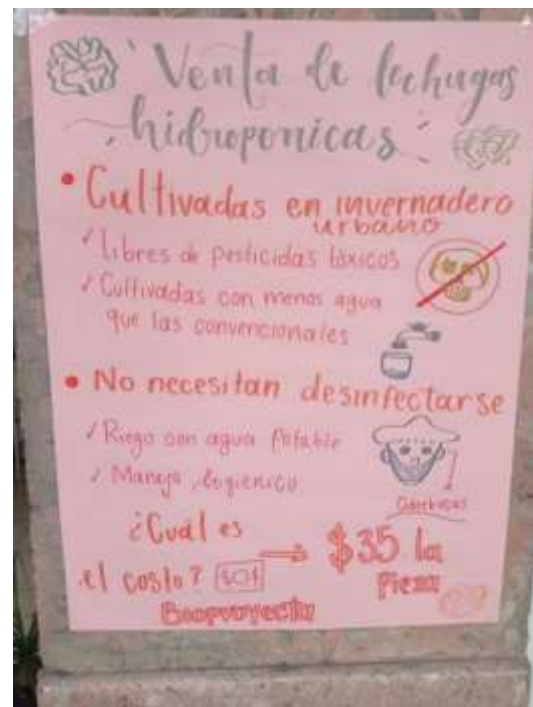 Venta de lechugas
hidroponicas
• Cultivadas en invernadero
urbano
✓ Libres de pesticidas tóxicos
✓ Cultivadas con menos agua
que las convencionales
• No necesitan desinfectarse
✓ Riego con agua potable
✓ Manejo higienico
¿Cuál es
el costo?
$35 la
Pieza
Bioproyecto